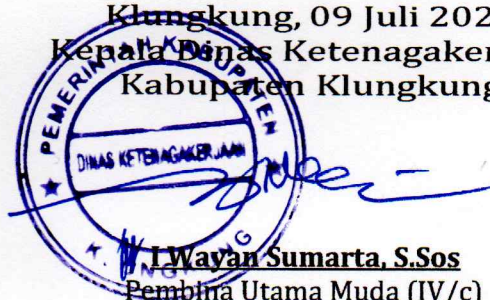 Klungkung, 09 Juli 202
Kepala Dinas Ketenagaker
Kabupaten Klungkung
PEMERINTAH KABUPATEN
DINAS KETENAGAKERJAAN
I Wayan Sumarta, S.Sos
Pembina Utama Muda (IV/c)